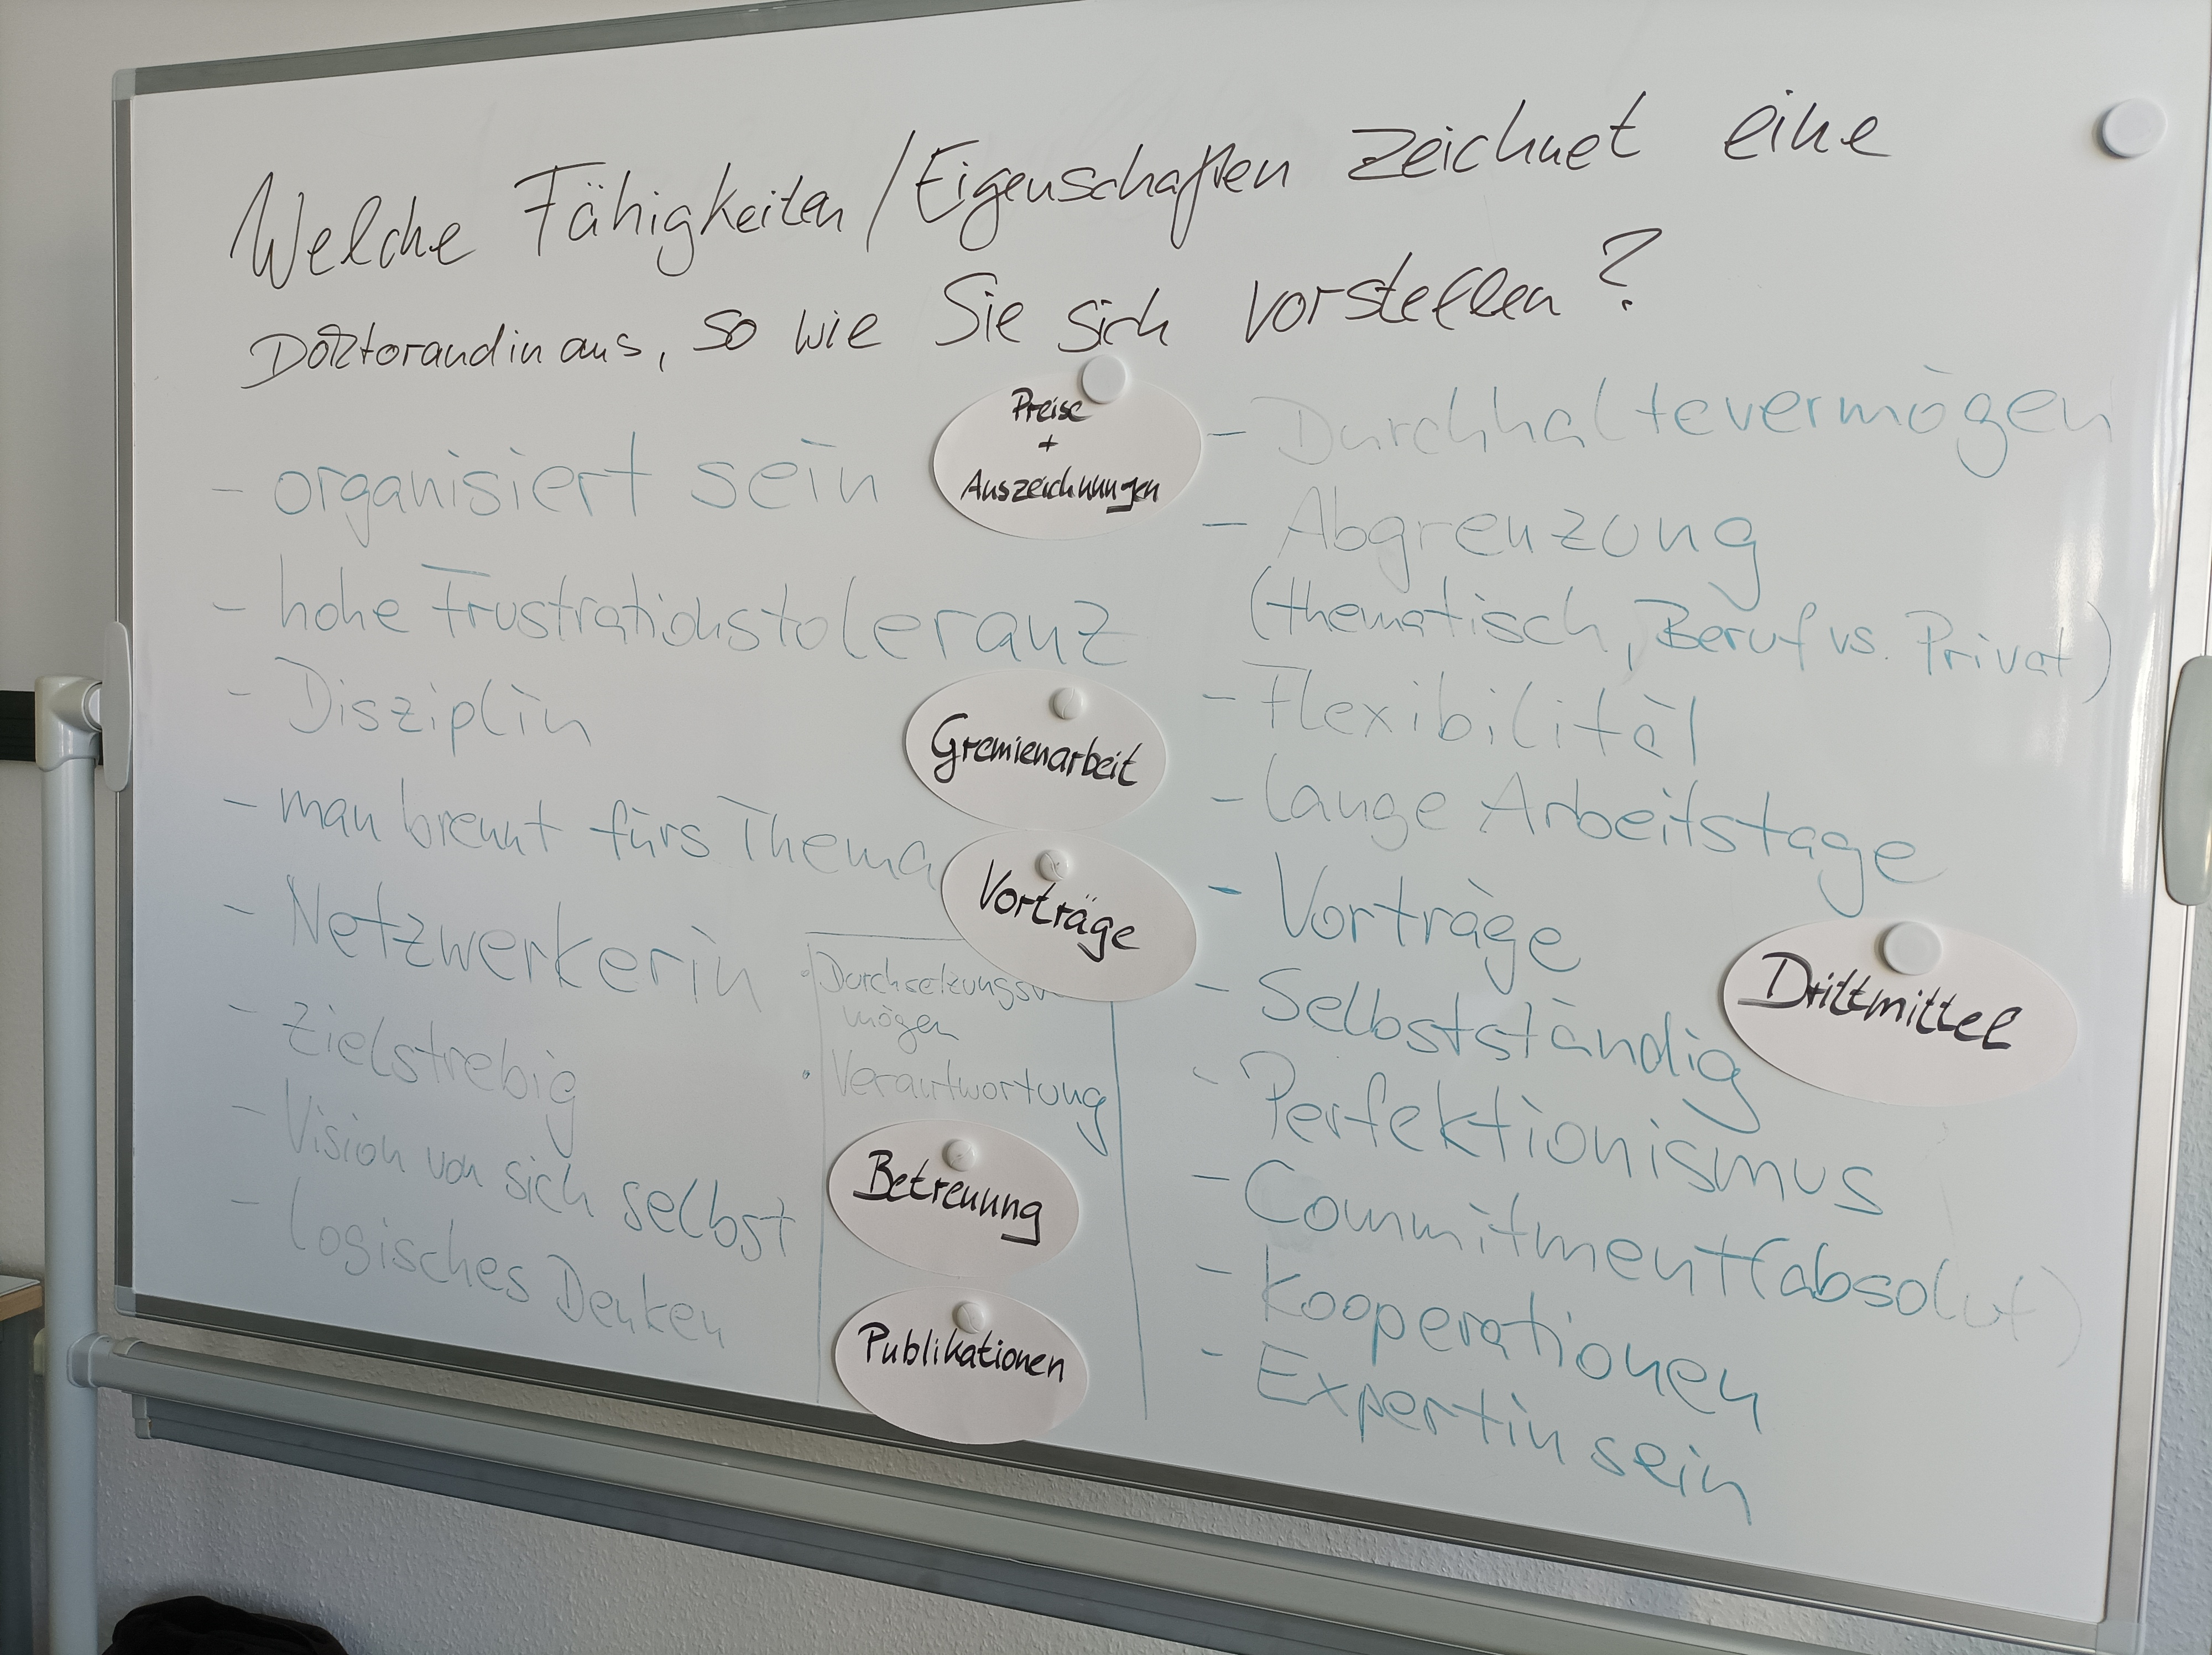 Welche Fähigkeiten/Eigenschaften zeichnet eine
Doktorandin aus, so wie Sie sich vorstellen?
Preise
+
Auszeichnungen
- organisiert sein
- hohe Frustrationstoleranz
- Disziplin
Gremienarbeit
- man brennt fürs Thema
Vorträge
- Netzwerkerin
- Zielstrebig
- Vision von sich selbst
- Logisches Denken
• Durchsetzungsv
mögen
• Verantwortung
Betreuung
Publikationen
- Durchhaltevermögen
- Abgrenzung
(thematisch, Beruf vs. Privat)
- Flexibilität
- lange Arbeitstage
- Vorträge
- Selbstständig
Drittmittel
- Perfektionismus
- Commitment (absolut)
- Kooperationen
- Expertin sein